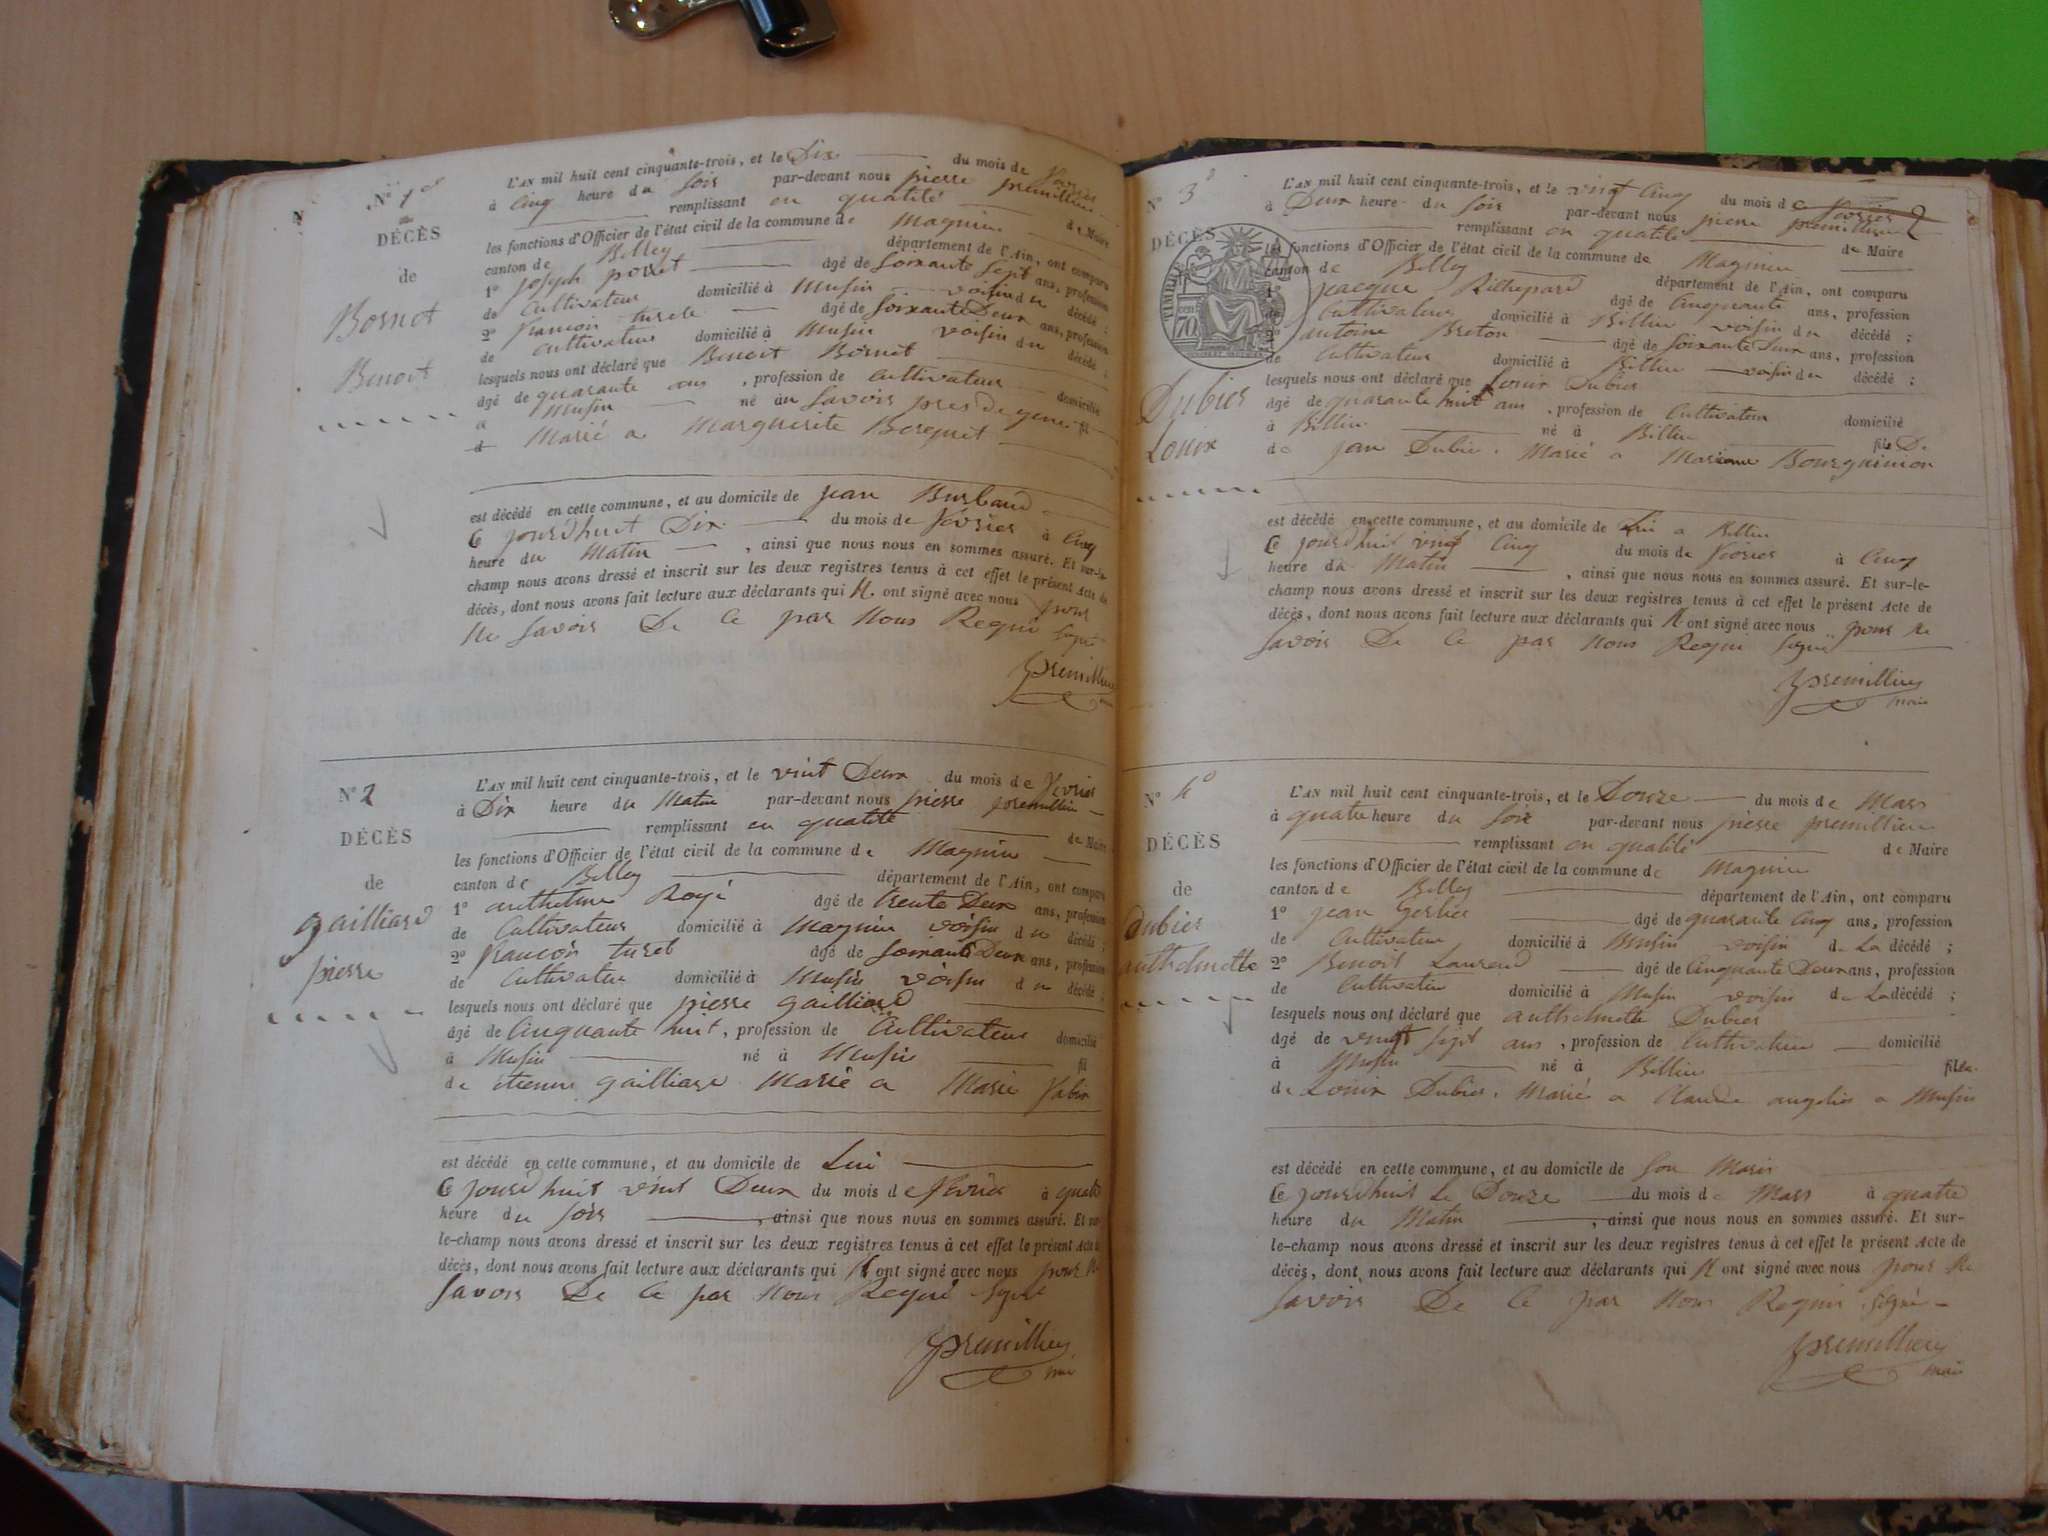 N° 1er
DÉCÈS
de
Bornet
Benoit
L'AN mil huit cent cinquante-trois, et le Dix du mois de fevrier
à Cinq heure du soir par-devant nous pierre premillieu
remplissant en qualité de Maire
les fonctions d'Officier de l'état civil de la commune de Magnieu
canton de Belley département de l'Ain, ont comparu
1° joseph âgé de soixante sept ans, profession
de Cultivateur domicilié à Musin voisin du décédé ;
2° francois turet âgé de soixante Deux ans, profession
de cultivateur domicilié à Musin voisin du décédé ;
lesquels nous ont déclaré que Benoit Bornet
âgé de quarante ans, profession de Cultivateur domicilié
à Musin né en Savois pres de fil
d Marié a Marguerite
est décédé en cette commune, et au domicile de jean Burbaud
Ce jourdhuit Dix du mois de fevrier à Cinq
heure du Matin, ainsi que nous nous en sommes assuré. Et sur-le-
champ nous avons dressé et inscrit sur les deux registres tenus à cet effet le présent Acte de
décès, dont nous avons fait lecture aux déclarants qui N. ont signé avec nous pour
Ne savoir De Ce par Nous Requi signé
premillieu
maire
N° 2
DÉCÈS
de
gailliard
pierre
L'AN mil huit cent cinquante-trois, et le vint Deux du mois de fevrier
à Dix heure du Matin par-devant nous pierre premillieu
remplissant en qualité de Maire
les fonctions d'Officier de l'état civil de la commune de Magnieu
canton de Belley département de l'Ain, ont comparu
1° Royé âgé de trente Deux ans, profession
de Cultivateur domicilié à Magnieu voisin du décédé ;
2° francois turet âgé de soixante Deux ans, profession
de Cultivateur domicilié à Musin voisin du décédé ;
lesquels nous ont déclaré que pierre gailliard
âgé de Cinquante huit, profession de Cultivateur domicilié
à Musin né à Musin fil
de etienne gailliard Marié a Marie fabin
est décédé en cette commune, et au domicile de Lui
Ce jourdhuit vint Deux du mois de fevrier à quatre
heure du soir, ainsi que nous nous en sommes assuré. Et sur-
le-champ nous avons dressé et inscrit sur les deux registres tenus à cet effet le présent Acte de
décès, dont nous avons fait lecture aux déclarants qui N ont signé avec nous pour Ne
savoir De Ce par Nous Requi signé
premillieu
maire
N° 3°
DÉCÈS
TIMBRE
70
Dubier
Louis
L'AN mil huit cent cinquante-trois, et le vingt Cinq du mois de fevrier 2
à Deux heure du soir par-devant nous pierre premillieu
remplissant en qualité de Maire
les fonctions d'Officier de l'état civil de la commune de Magnieu
canton de Belley département de l'Ain, ont comparu
1° jacque âgé de Cinquante ans, profession
de Cultivateur domicilié à Billieu voisin du décédé ;
2° antoine Breton âgé de soixante Deux ans, profession
de Cultivateur domicilié à Billieu voisin du décédé ;
lesquels nous ont déclaré que Louis Dubier
âgé de quarante huit ans, profession de Cultivateur domicilié
à Billieu né à Billieu fils De
de jean Dubier. Marié a Mariane Bourguinion
est décédé en cette commune, et au domicile de Lui a Billieu
Ce jourdhuit vingt Cinq du mois de fevrier à Cinq
heure du Matin, ainsi que nous nous en sommes assuré. Et sur-le-
champ nous avons dressé et inscrit sur les deux registres tenus à cet effet le présent Acte de
décès, dont nous avons fait lecture aux déclarants qui N ont signé avec nous pour Ne
savoir De Ce par Nous Requi signé
premillieu
maire
N° 4°
DÉCÈS
de
Dubier
anthelmette
L'AN mil huit cent cinquante-trois, et le Douze du mois de Mars
à quatre heure du soir par-devant nous pierre premillieu
remplissant en qualité de Maire
les fonctions d'Officier de l'état civil de la commune de Magnieu
canton de Belley département de l'Ain, ont comparu
1° jean Gerlier âgé de quarante Cinq ans, profession
de Cultivateur domicilié à Musin voisin de La décédé ;
2° Benoit Laurend âgé de Cinquante Deux ans, profession
de Cultivateur domicilié à Musin voisin de La décédé ;
lesquels nous ont déclaré que anthelmette Dubier
âgé de vingt sept ans, profession de Cultivateur domicilié
à Musin né à Billieu fille
de Louis Dubier. Marié a Claude a Musin
est décédé en cette commune, et au domicile de son Marie
Ce jourdhuit Le Douze du mois de Mars à quatre
heure du Matin, ainsi que nous nous en sommes assuré. Et sur-
le-champ nous avons dressé et inscrit sur les deux registres tenus à cet effet le présent Acte de
décès, dont nous avons fait lecture aux déclarants qui N ont signé avec nous pour Ne
savoir De Ce par Nous Requi signé
premillieu
maire